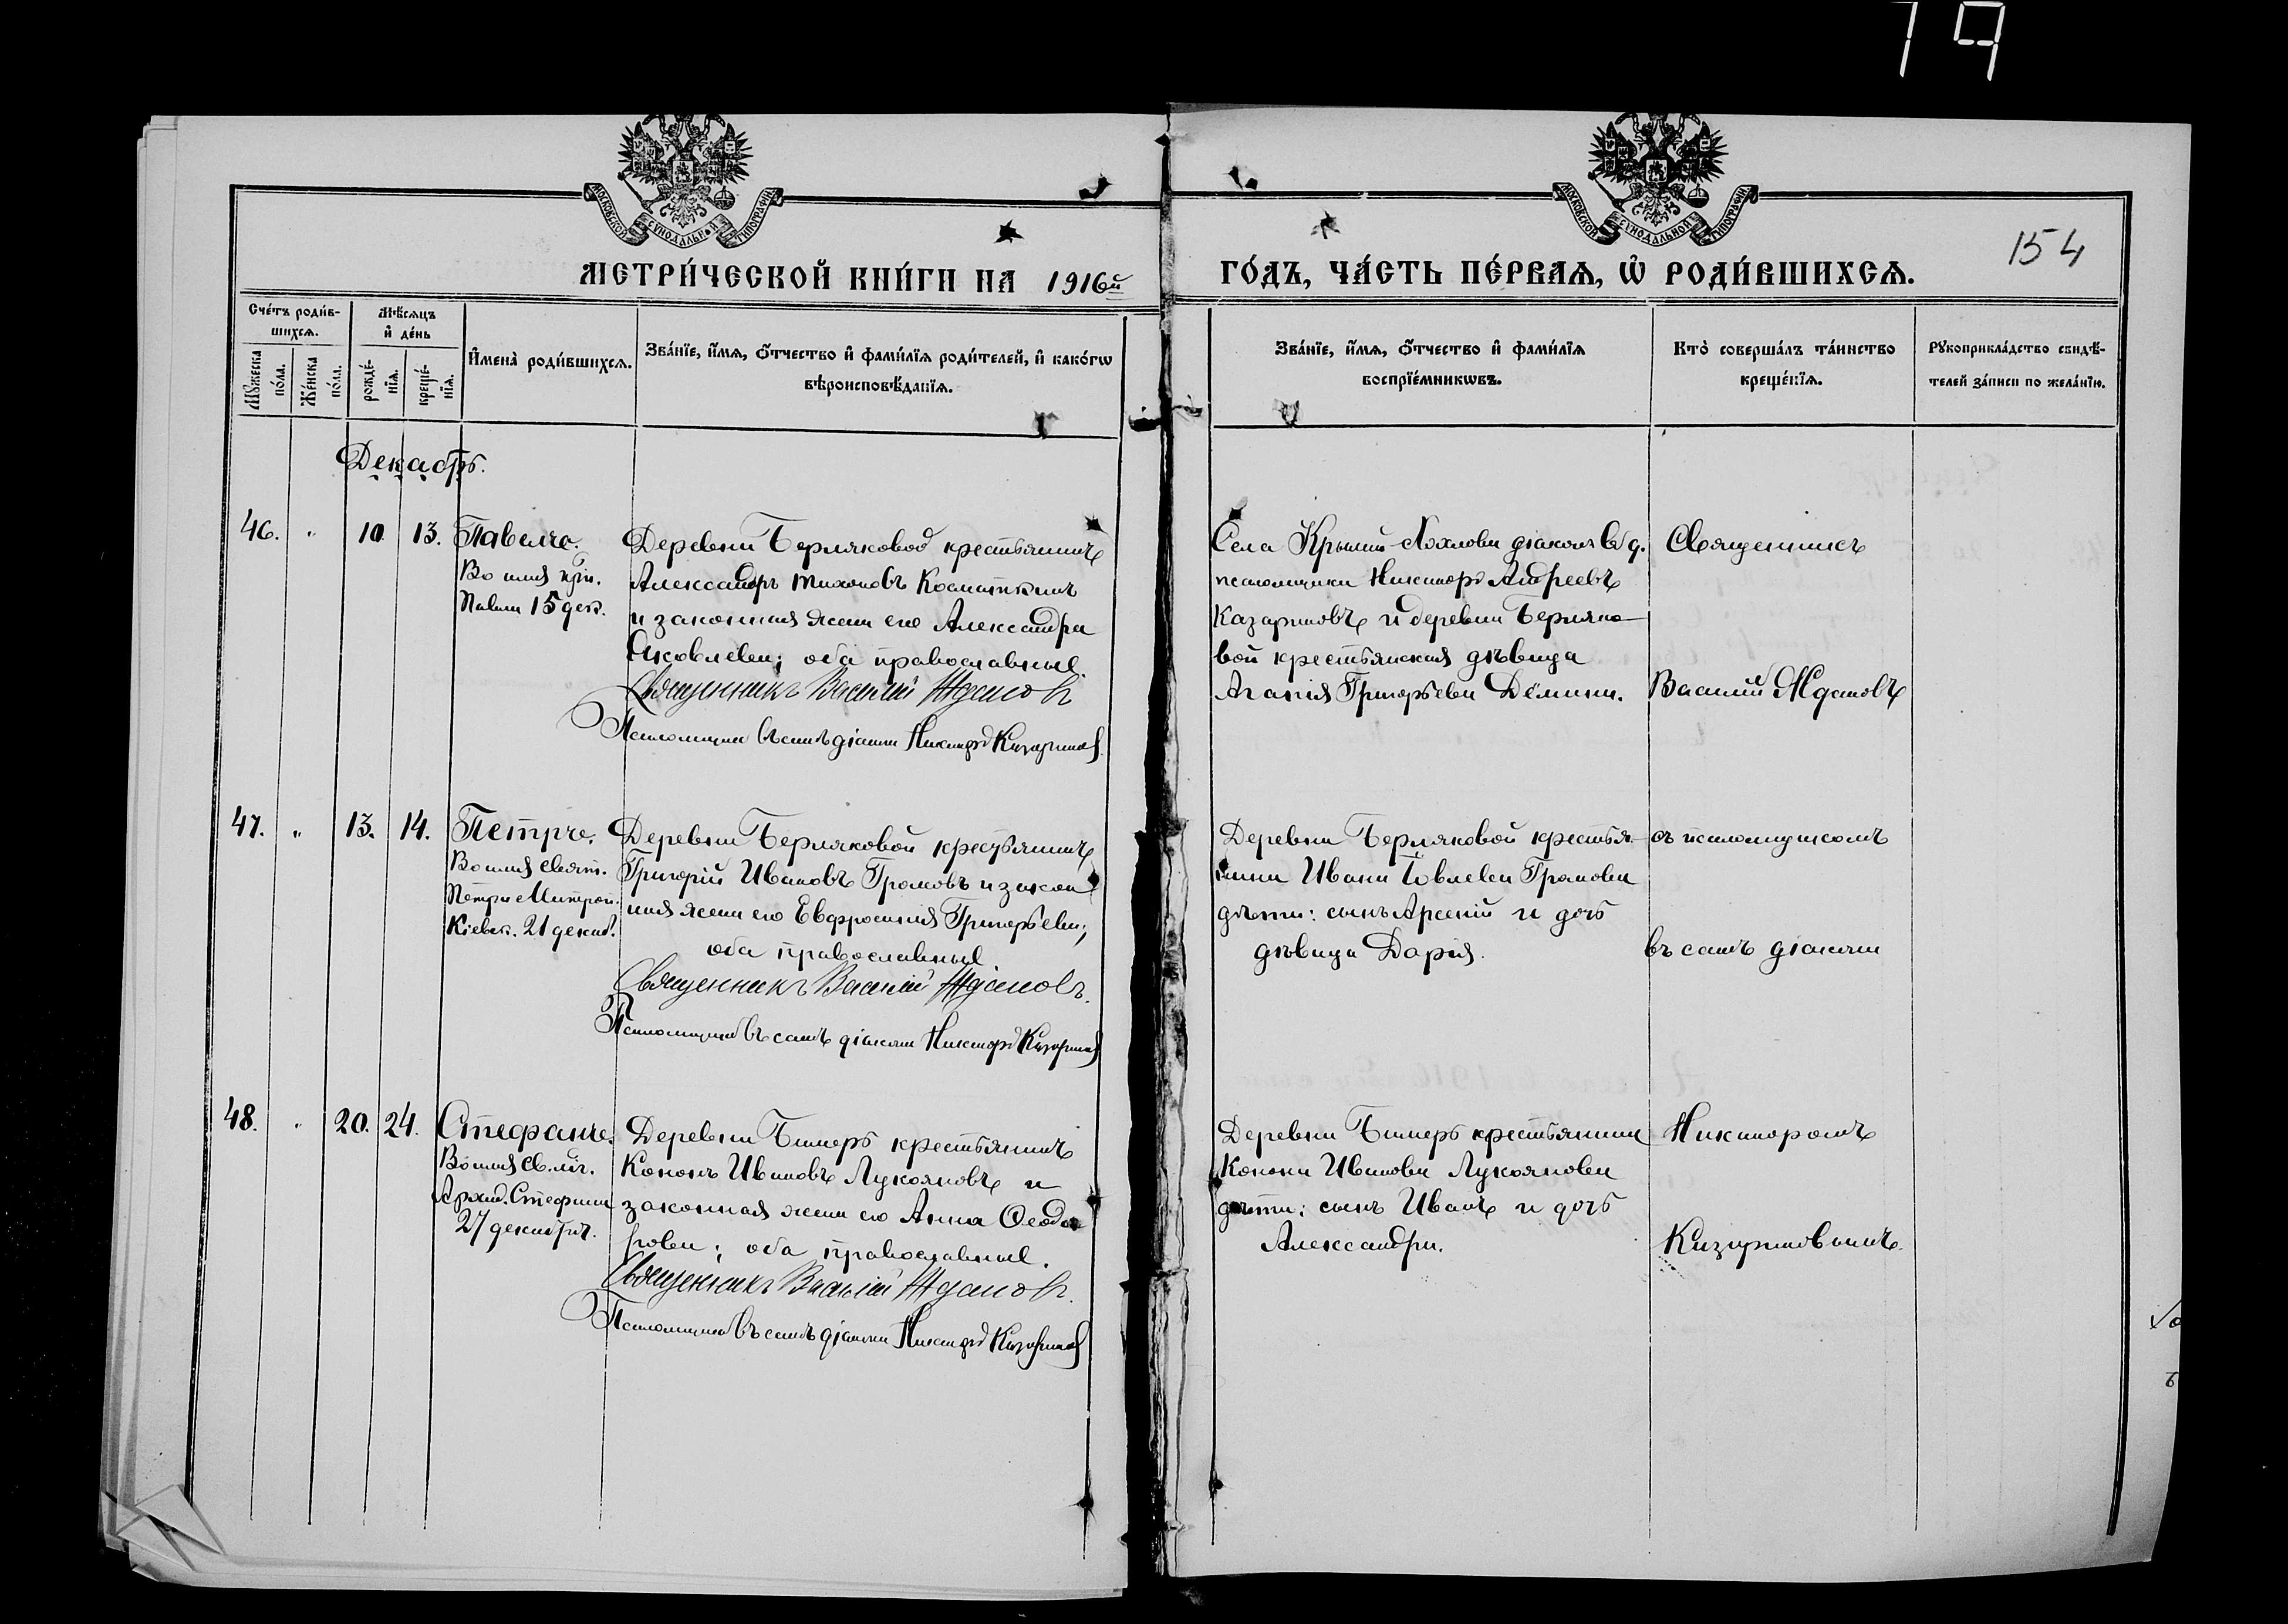 19
МОСКОВСКОЙ СѴНОДАЛЬНОЙ ТИПОГРАФІИ
МОСКОВСКОЙ СѴНОДАЛЬНОЙ ТИПОГРАФІИ
154
МЕТРИ́ЧЕСКОЙ КНИ́ГИ НА 1916й
ГО́ДЪ, ЧА́СТЬ ПЕ́РВАѦ, Ѡ҆ РОДИ́ВШИХСѦ.
Сче́тъ роди́в-
шихсѧ.
Мѣ́сѧцъ
и҆ де́нь
Мꙋ́жеска
по́ла.
Же́нска
по́ла.
рожде́-
нїѧ.
креще́-
нїѧ.
И҆мена̀ роди́вшихсѧ.
Зва́нїе, и҆́мѧ, ѻ҆́тчество и҆ фами́лїѧ роди́телей, и҆ како́гѡ
вѣроисповѣ́данїѧ.
Зва́нїе, и҆́мѧ, ѻ҆́тчество и҆ фами́лїѧ
воспрїе́мникѡвъ.
Кто̀ соверша́лъ та́инство
креще́нїѧ.
Рꙋкоприкла́дство свидѣ́-
телей за́писи по жела́нїю.
Декабрь.
46. " 10 13. Павелъ.
Во имя
Павла 15 дек.
Деревни Берляковой крестьянинъ
Александръ Тихоновъ
и законная жена его Александра
Яковлева; оба православные.
Священникъ Василій Ждановъ
Псаломщикъ въ санѣ діакона Никаноръ Казариновъ
Села діаконъ
псаломщикъ Никаноръ Андреевъ
Казариновъ и деревни Берляко-
вой крестьянская дѣвица
Агапія Григорьева Дёмина.
Священникъ
Василій Ждановъ
47. " 13. 14. Петръ.
Во имя Свят.
Петра Митроп.
Кіевск. 21 декаб.
Деревни Берляковой крестьянинъ
Григорій Ивановъ Громовъ и закон
ная жена его Евфросинія Григорьева;
оба православные.
Священникъ Василій Ждановъ.
Псаломщикъ въ санѣ діакона Никаноръ Казариновъ
Деревни Берляковой крестья-
нина Ивана Громова
дѣти: сынъ Арсеній и дочь
дѣвица Дарія.
съ псаломщикомъ
въ санѣ діакона
48. " 20. 24. Стефанъ.
Во имя Св. м.
Архид. Стефана
27 декабря.
Деревни Бимеръ крестьянинъ
Кононъ Ивановъ Лукояновъ и
законная жена его Анна Ѳеодо
рова; оба православные.
Священникъ Василій Ждановъ.
Псаломщикъ въ санѣ діакона Никаноръ Казариновъ
Деревни Бимеръ крестьянина
Конона Иванова Лукоянова
дѣти: сынъ Иванъ и дочь
Александра.
Никаноромъ
Казариновымъ.